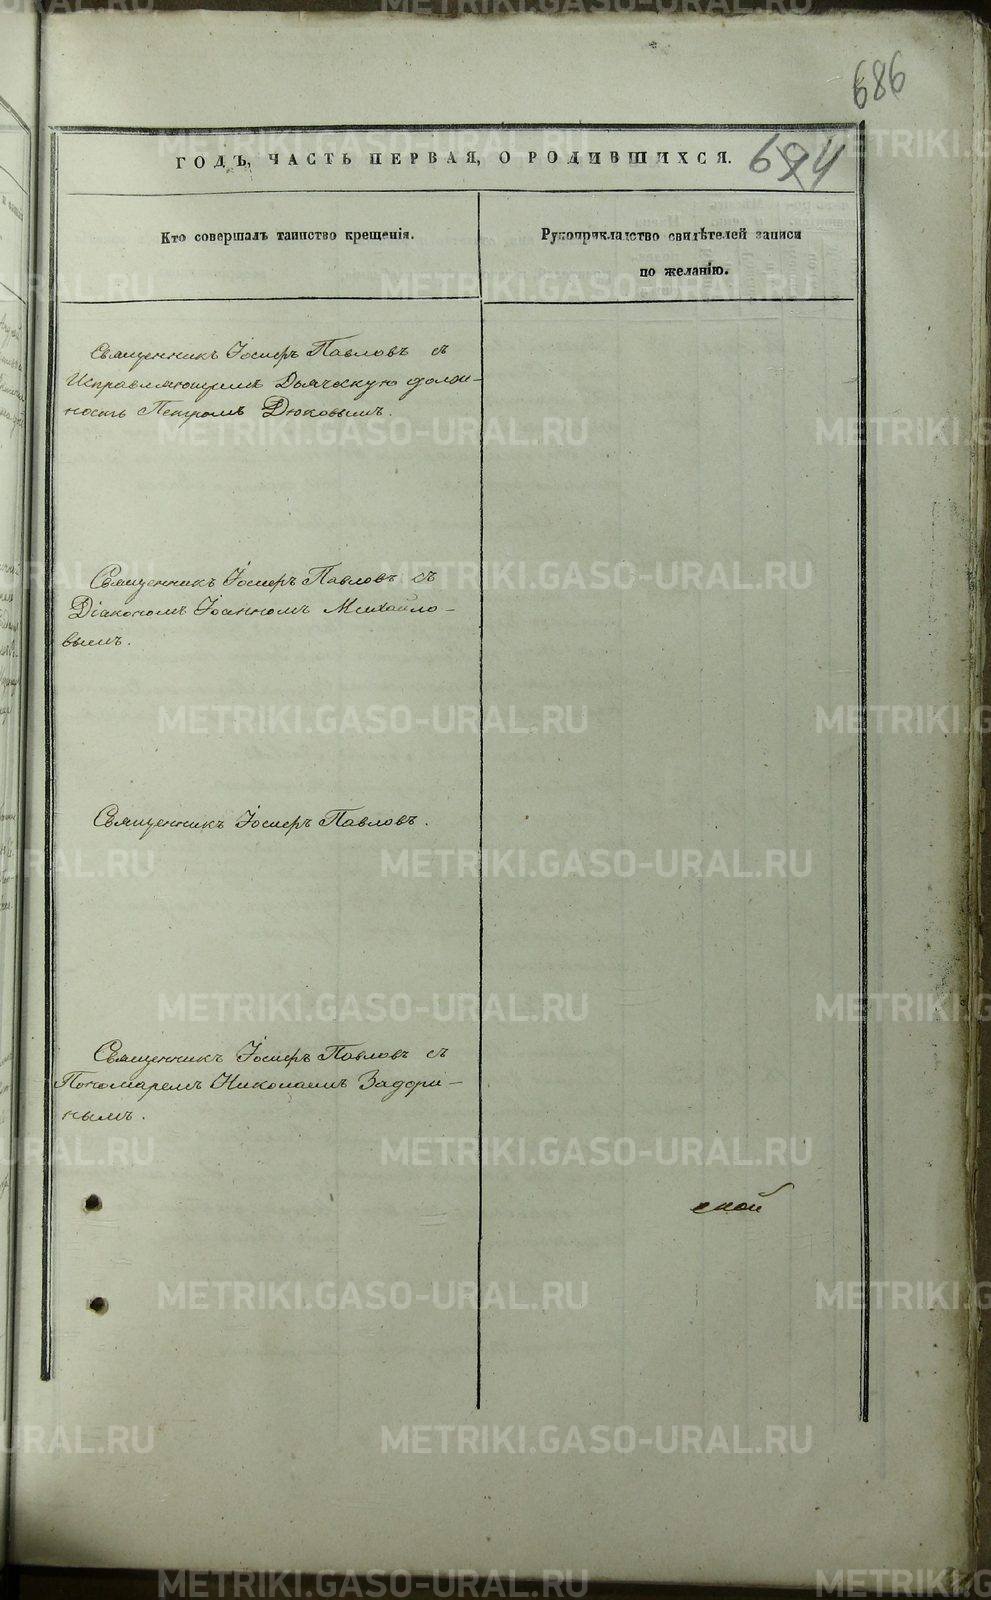 686
ГОДЪ, ЧАСТЬ ПЕРВАЯ, О РОДИВШИХСЯ.
694
Кто совершалъ таинство крещенія.
Рукоприкладство свидѣтелей записи
по желанію.
Священникъ Іосифъ Павловъ съ
Исправляющимъ Дьяческую долж-
ность Петромъ Дюковымъ.
Священникъ Іосифъ Павловъ съ
Діакономъ Іоанномъ Михайло-
вымъ.
Священникъ Іосифъ Павловъ.
Священникъ Іосифъ Павловъ съ
Пономаремъ Николаемъ Задори-
нымъ.
ской
METRIKI.GASO-URAL.RU